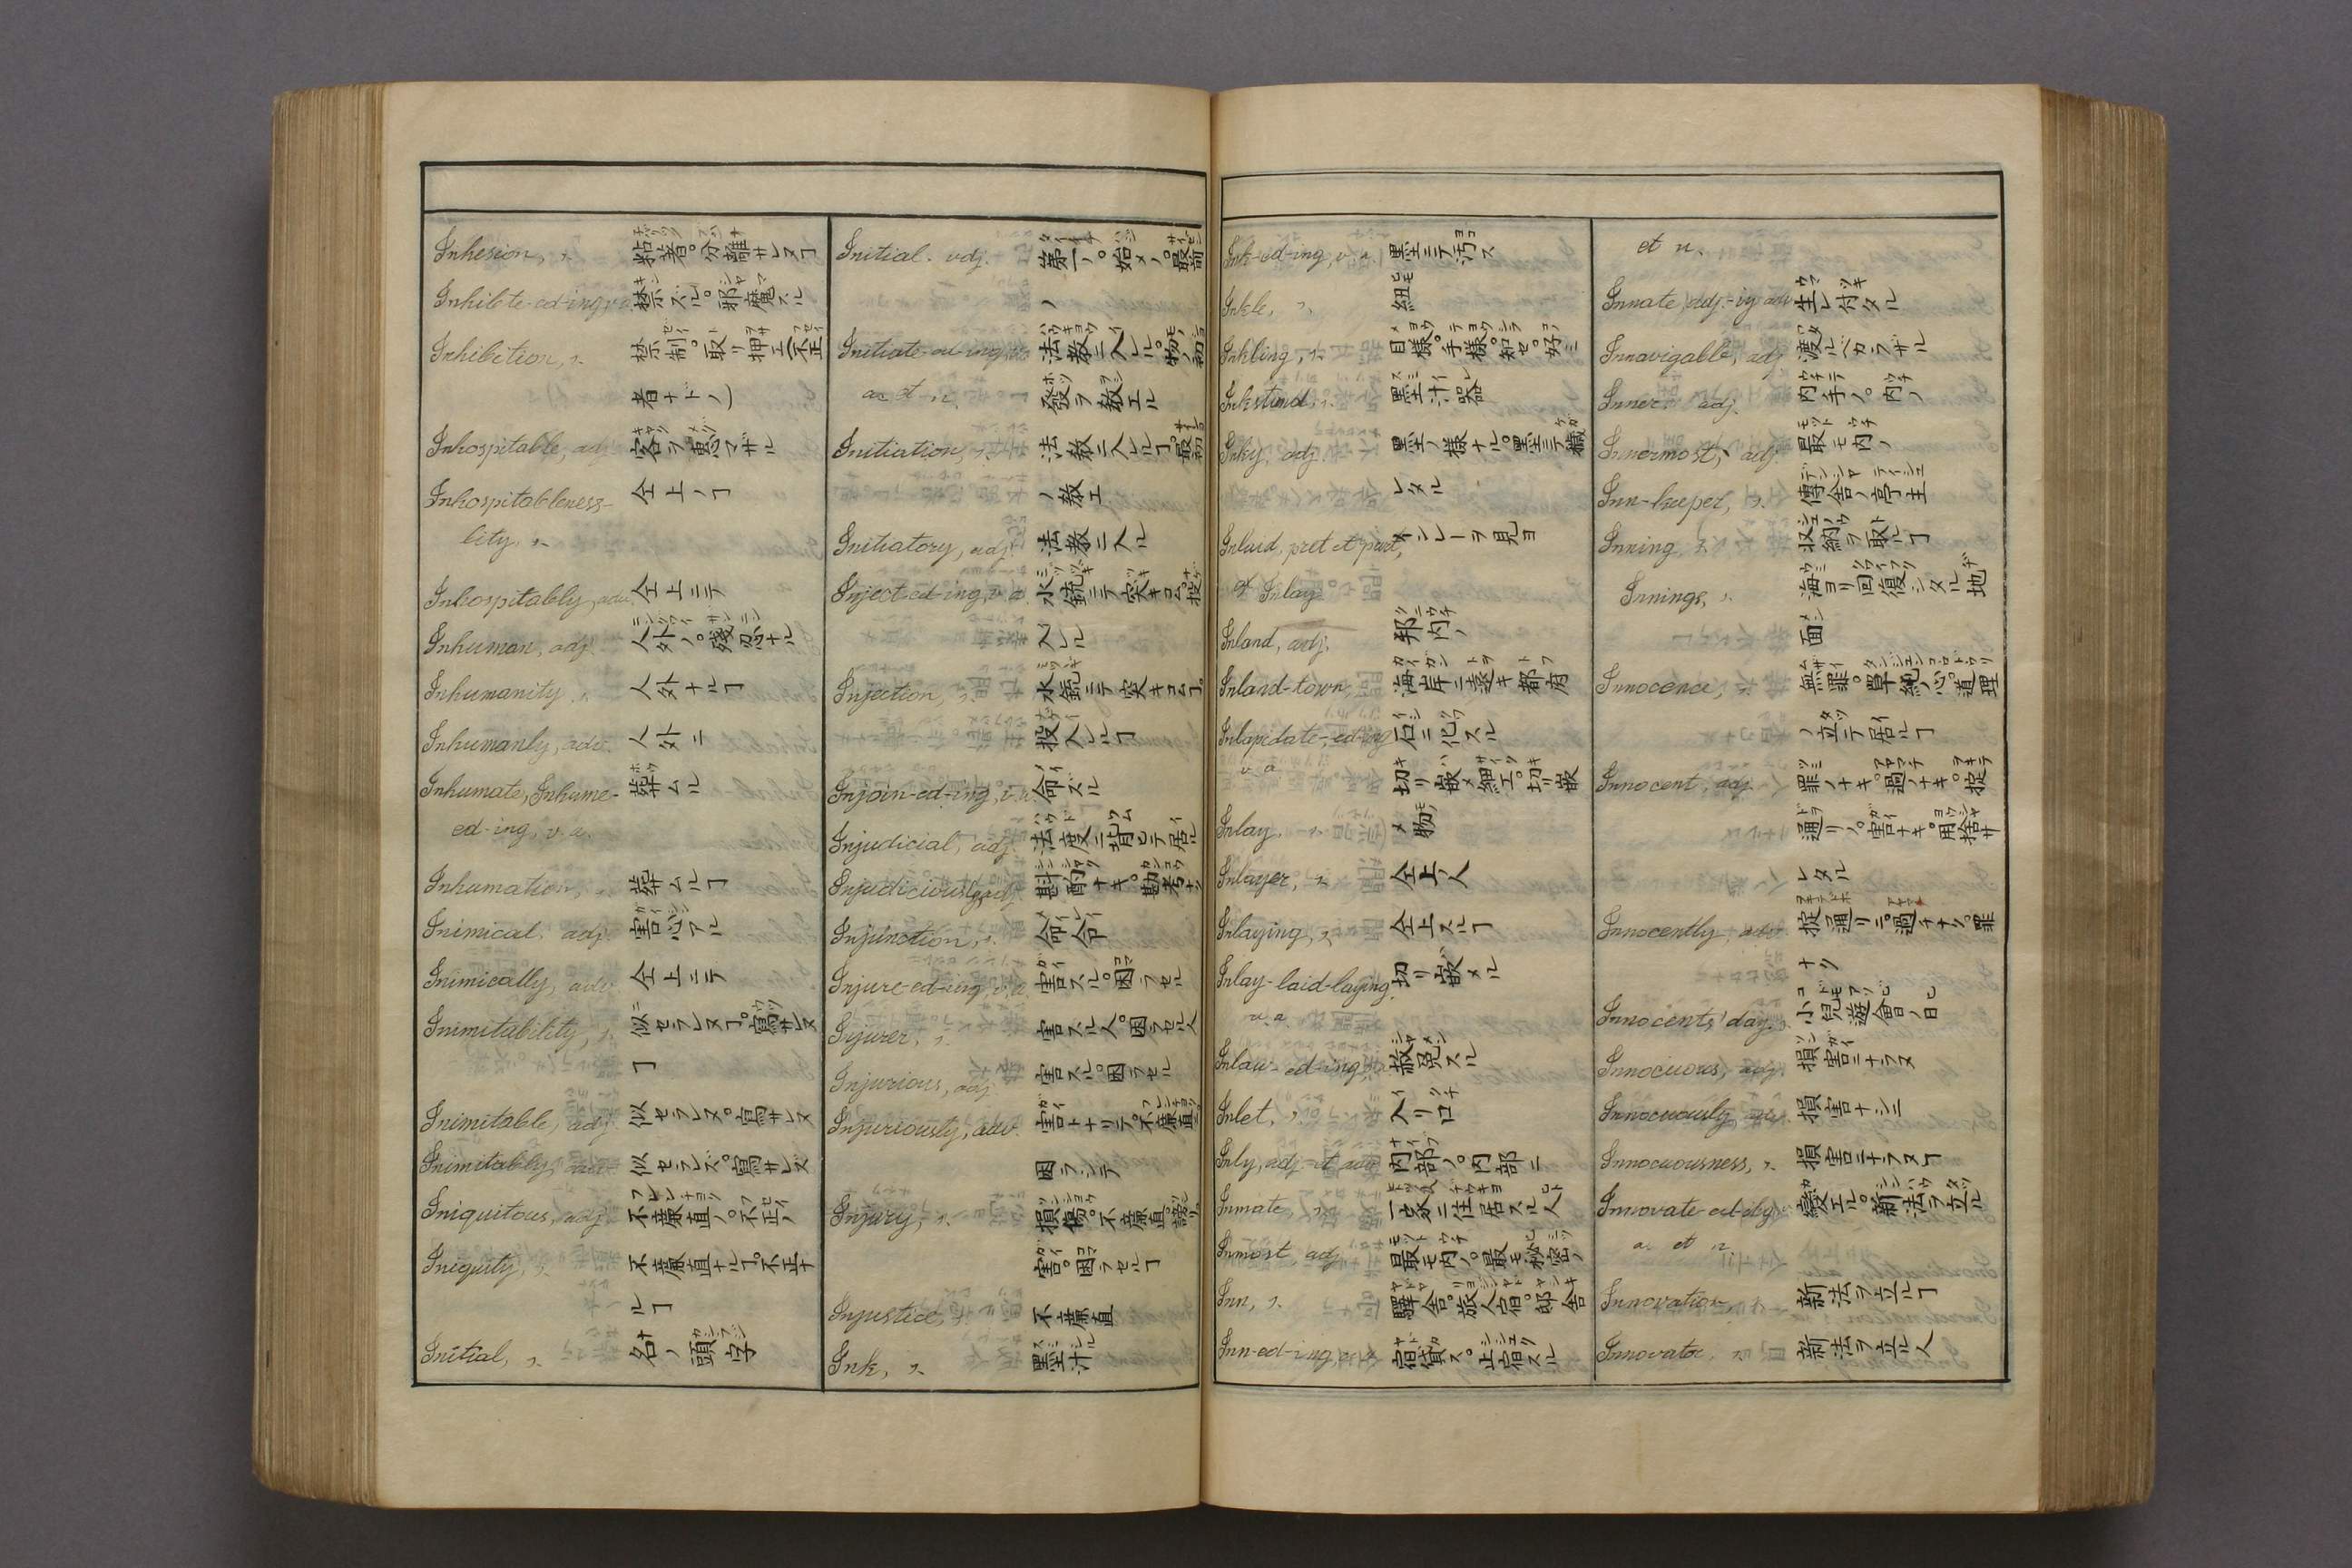 Inhesion, n. 粘著。分離サレヌヿ
Inhibite-ed-ing, v.a. 禁ズル。邪魔スル
Inhibition, n. 禁制。取リ押エ(不正
者ナドノ)
Inhospitable, adj. 客ヲ悪マザル
Inhospitableness- 仝上ノヿ
lity, n.
Inhospitably, adv. 仝上ニテ
Inhuman, adj. 人外ノ。殘忍ナル
Inhumanity, n. 人外ナルヿ
Inhumanly, adv. 人外ニ
Inhumate, Inhume- 葬ムル
ed-ing, v.a.
Inhumation, n. 葬ムルヿ
Inimical, adj. 害心アル
Inimically, adv. 仝上ニテ
Inimitability, n. 似セラレヌヿ。寫サレヌ
ヿ
Inimitable, adj. 似セラレヌ。寫サレヌ
Inimitably, adv. 似セラレズ。寫サレズ
Iniquitous, adj. 不廉直ノ。不正ノ
Iniquity, n. 不廉直ナルヿ。不正ナ
ルヿ
Initial, n. 名ノ頭字
Initial. adj. 第一ノ。始メノ。最前
ノ
Initiate-ed-ing, v. 法教ニ入ル。物ノ初
a. et n. 發ヲ教エル
Initiation, n. 法教ニ入ルヿ。最初
ノ教エ
Initiatory, adj. 法教ニ入ル
Inject-ed-ing, v.a. 水銃ニテ突キコム。投
ベル
Injection, n. 水銃ニテ突キコムヿ。
投入ルヿ
Injoin-ed-ing, v.a. 命ズル
Injudicial, adj. 法度ニ背ヒテ居ル
Injudiciously, adj. 斟酌ナキ。勘考ナ
Injunction, n. 命令
Injure-ed-ing, v.a. 害スル。困ラセル
Injurer, n. 害スル人。困ラセル人
Injurious, adj. 害スル。困ラセル
Injuriously, adv. 害トナリテ。不廉直。
困ラシテ
Injury, n. 損傷。不廉直。謗リ。
害。困ラセルヿ
Injustice, n. 不廉直
Ink, n. 墨汁
Ink-ed-ing, v.a. 墨ニテ汚ス
Inkle, n. 紐
Inkling, n. 目樣。手樣。知セ。好ミ
Inkstand, n. 墨汁器
Inky, adj. 墨ノ樣ナル。墨ニテ穢
レタル
Inlaid, pret et part, インレーヲ見ヨ
of Inlay
Inland, adj. 邦内ノ
Inland-town, 海岸ニ遠キ都府
Inlapidate-ed-ing 石ニ化スル
v.a. 切リ嵌メ細工。切リ嵌
Inlay, n. メ物
Inlayer, n. 仝上ノ人
Inlaying, n. 仝上スルヿ
Inlay-laid-laying, 切リ嵌メル
v.a.
Inlaw-ed-ing, 赦免スル
Inlet, n. 入リ口
Inly, adj. et adv. 内部ノ。内部ニ
Inmate, n. 一ツ家ニ住居スル人
Inmost, adj. 最モ内ノ。最モ秘密ノ
Inn, n. 驛舎。旅人宿。邸舎
Inn-ed-ing, v.a. 宿貸ス。止宿スル
et n.
Innate, adj.-ly adv. 生レ付タル
Innavigable, adj. 渡ルベカラザル
Inner, adj. 内手ノ。内ノ
Innermost, adj. 最モ内ノ
Inn-keeper, n. 傳舎ノ亭主
Inning, n. 収納ヲ取ルヿ
Innings, n. 海ヨリ回復シタル地
面
Innocence, n. 無罪。單純ノ心。道理
ノ立テ居ルヿ
Innocent, adj. 罪ノナキ。過ノナキ。掟
通リノ。害ナキ。用捨サ
レタル
Innocently, adv. 掟通リニ。過チナク。罪
ナク
Innocents' day. 小兒遊會ノ日
Innocuous, adj. 損害ニナラヌ
Innocuously, adv. 損害ナシニ
Innocuousness, n. 損害ニナラヌヿ
Innovate-ed-ing, 變エル。新法ヲ立ル
a. et n.
Innovation, n. 新法ヲ立ルヿ
Innovator, n. 新法ヲ立ル人